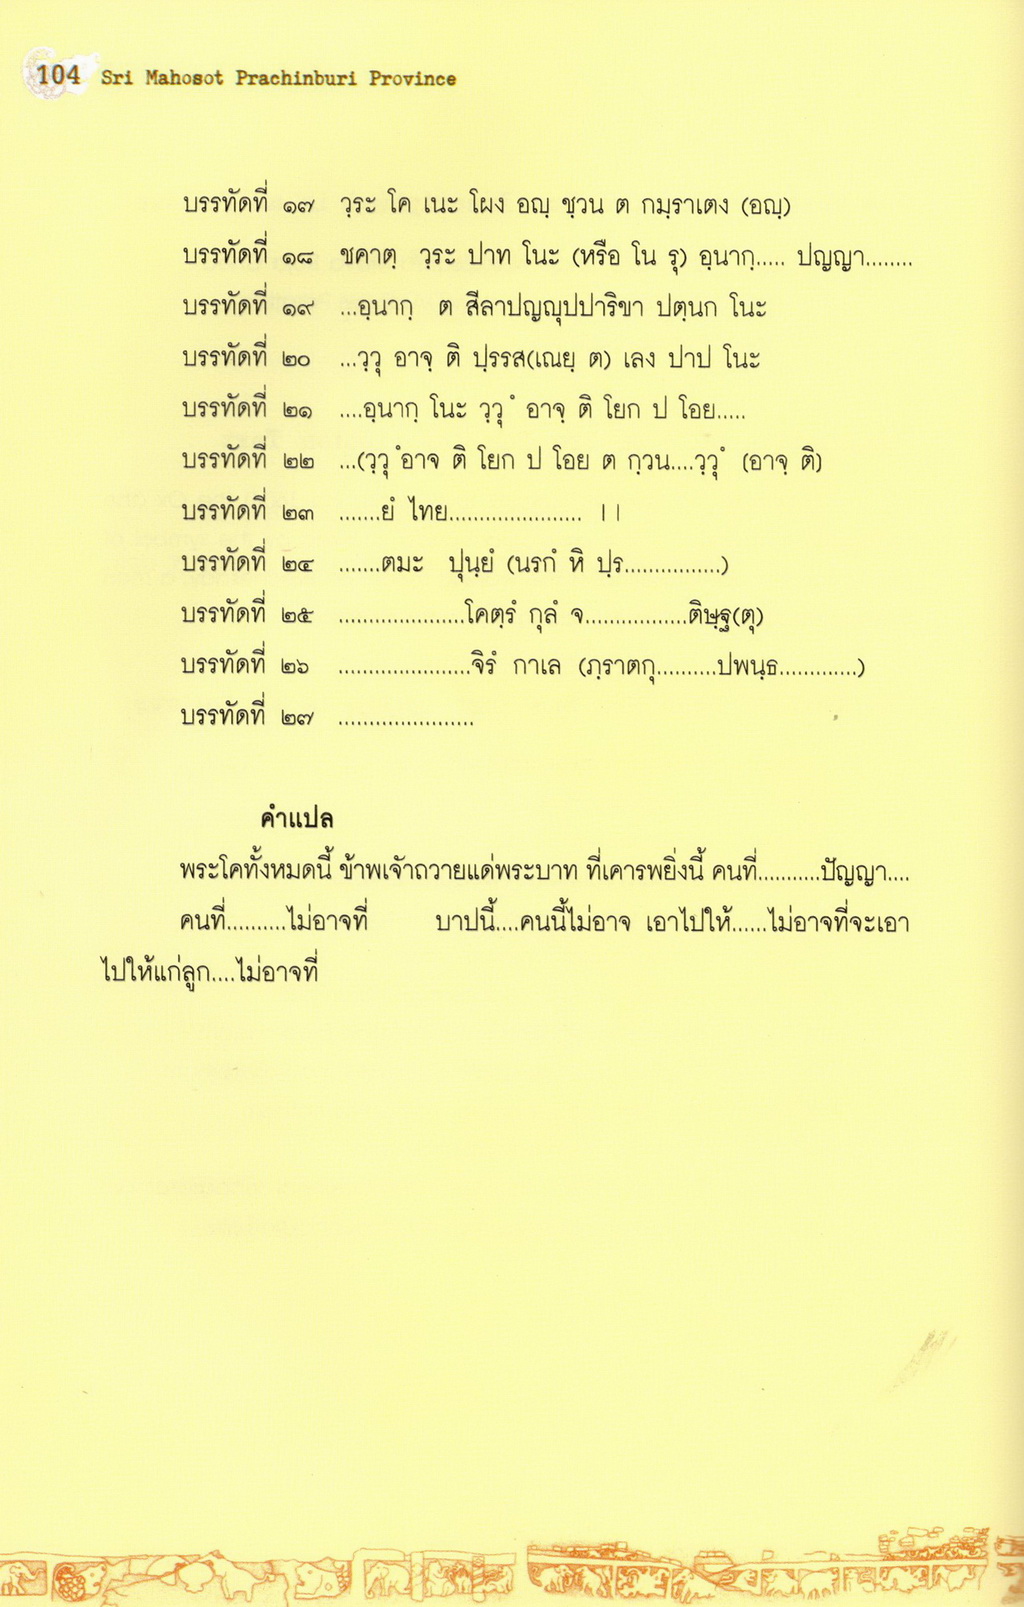 104 Sri Mahosot Prachinburi Province
บรรทัดที่ ๑๗ วฺระ โค เนะ โผง อญฺ ชฺวน ต กมฺราเตง (อญฺ)
บรรทัดที่ ๑๘ ชคาตฺ วฺระ ปาท โนะ (หรือ โน รุ) อฺนากฺ..... ปญญา........
บรรทัดที่ ๑๙ ...อฺนากฺ ต สีลาปญญุปปาริขา ปตฺนก โนะ
บรรทัดที่ ๒๐ ...วฺวุ อาจฺ ติ ปฺรรส(เณยฺ ต) เลง ปาป โนะ
บรรทัดที่ ๒๑ ....อฺนากฺ โนะ วฺวุ ํ อาจฺ ติ โยก ป โอย.....
บรรทัดที่ ๒๒ ...(วฺวุ ํอาจ ติ โยก ป โอย ต กฺวน....วฺวุ ํ (อาจฺ ติ)
บรรทัดที่ ๒๓ .......ยํ ไทย...................... ।।
บรรทัดที่ ๒๔ .......ตมะ ปุนฺยํ (นรกํ หิ ปฺร................)
บรรทัดที่ ๒๕ .....................โคตฺรํ กุลํ จ.................ติษฺฐ(ตุ)
บรรทัดที่ ๒๖ ......................จิรํ กาเล (ภฺราตกฺ..........ปพนฺธ.............)
บรรทัดที่ ๒๗ ......................
คำแปล
พระโคทั้งหมดนี้ ข้าพเจ้าถวายแด่พระบาท ที่เคารพยิ่งนี้ คนที่...........ปัญญา....
คนที่..........ไม่อาจที่ บาปนี้....คนนี้ไม่อาจ เอาไปให้......ไม่อาจที่จะเอา
ไปให้แก่ลูก....ไม่อาจที่